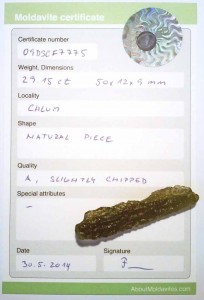 Moldavite certificate
Certificate number
Weight, Dimensions
29.15 ct 50x12x9 mm
Locality
CHLUM
Shape
NATURAL PIECE
Quality
A, SLIGHTLY CHIPPED
Special attributes
-
Date
Signature
30.5.2019
AboutMoldavites.com